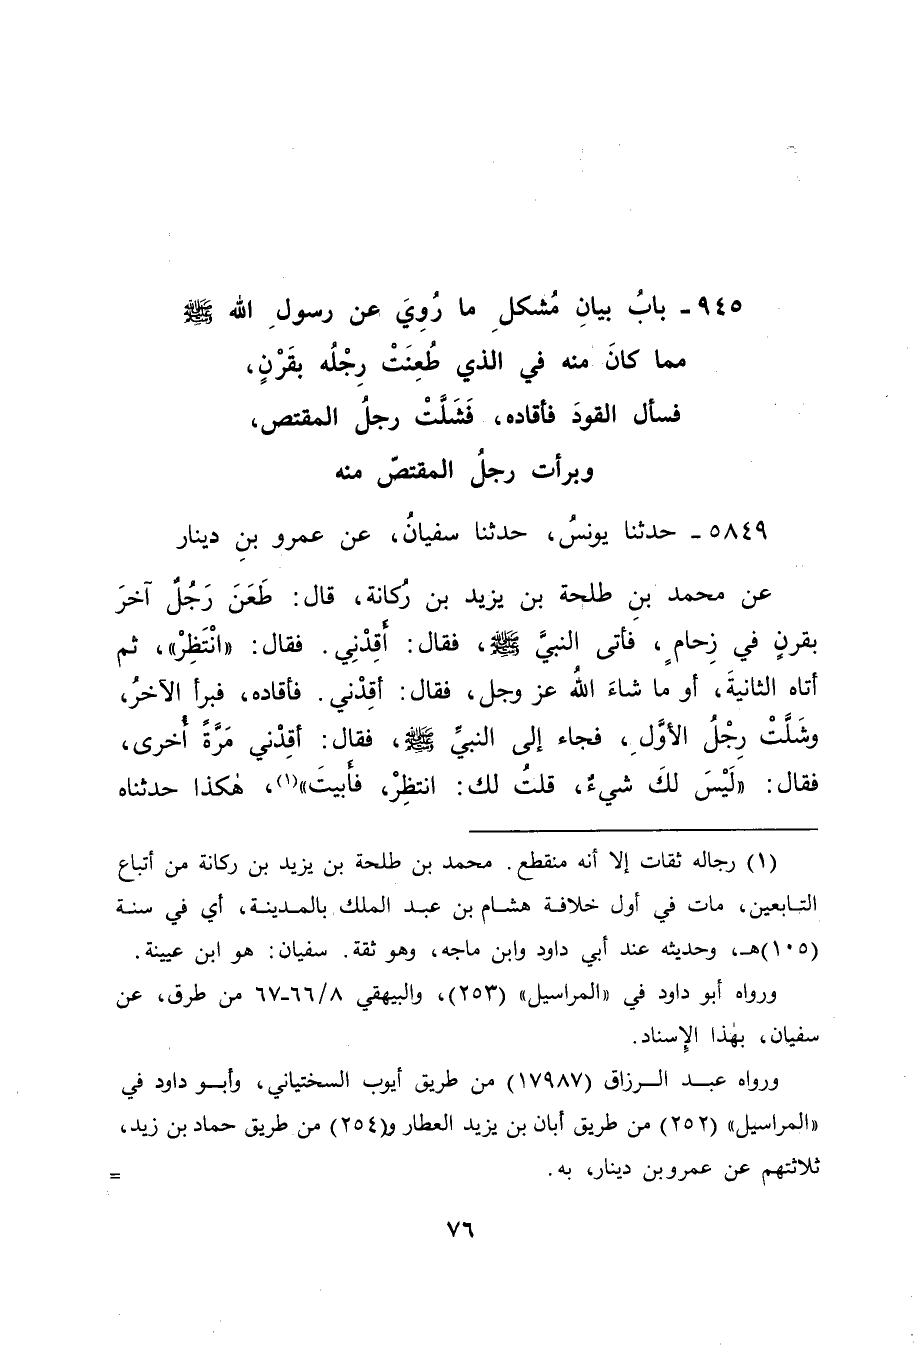 ٩٤٥ـ بابُ بيانِ مُشكلِ ما رُوِيَ عن رسولِ الله ﷺ
مما كانَ منه في الذي طُعِنَتْ رِجْلُه بقَرْنٍ،
فسأل القودَ فأقاده، فَشَلَّتْ رجلُ المقتص،
وبرأت رجلُ المقتصّ منه
٥٨٤٩ـ حدثنا يونسُ، حدثنا سفيانُ، عن عمرو بنِ دينار
عن محمد بنِ طلحة بن يزيد بن رُكانة، قال: طَعَنَ رَجُلٌ آخرَ
بقرنٍ في زِحامٍ، فأتى النبيَّ ﷺ، فقال: أَقِدْنِي. فقال: «انْتَظِرْ»، ثم
أتاه الثانيةَ، أو ما شاءَ اللهُ عز وجل، فقال: أقِدْني. فأقاده، فبرأ الآخرُ،
وشَلَّتْ رِجْلُ الأوَّلِ، فجاء إلى النبيِّ ﷺ، فقال: أقِدْني مَرَّةً أُخرى،
فقال: «لَيْسَ لكَ شيءٌ، قلتُ لك: انتظِرْ، فأَبيتَ»(١)، هٰكذا حدثناه
(١) رجاله ثقات إلا أنه منقطع. محمد بن طلحة بن يزيد بن ركانة من أتباع
التابعين، مات في أول خلافة هشام بن عبد الملك بالمدينة، أي في سنة
(١٠٥)هـ، وحديثه عند أبي داود وابن ماجه، وهو ثقة. سفيان: هو ابن عيينة.
ورواه أبو داود في «المراسيل» (٢٥٣)، والبيهقي ٦٦/٨ـ٦٧ من طرق، عن
سفيان، بهٰذا الإسناد.
ورواه عبد الرزاق (١٧٩٨٧) من طريق أيوب السختياني، وأبو داود في
«المراسيل» (٢٥٢) من طريق أبان بن يزيد العطار و(٢٥٤) من طريق حماد بن زيد،
ثلاثتهم عن عمرو بن دينار، به. =
٧٦